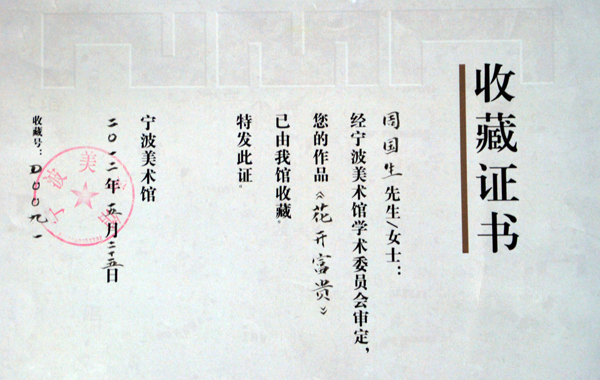 收藏证书
周国生先生/女士：
经宁波美术馆学术委员会审定，
您的作品《花开富贵》
已由我馆收藏。
特发此证。
宁波美术馆
二〇一二年五月二十五日
收藏号：D00九一
宁波美术馆